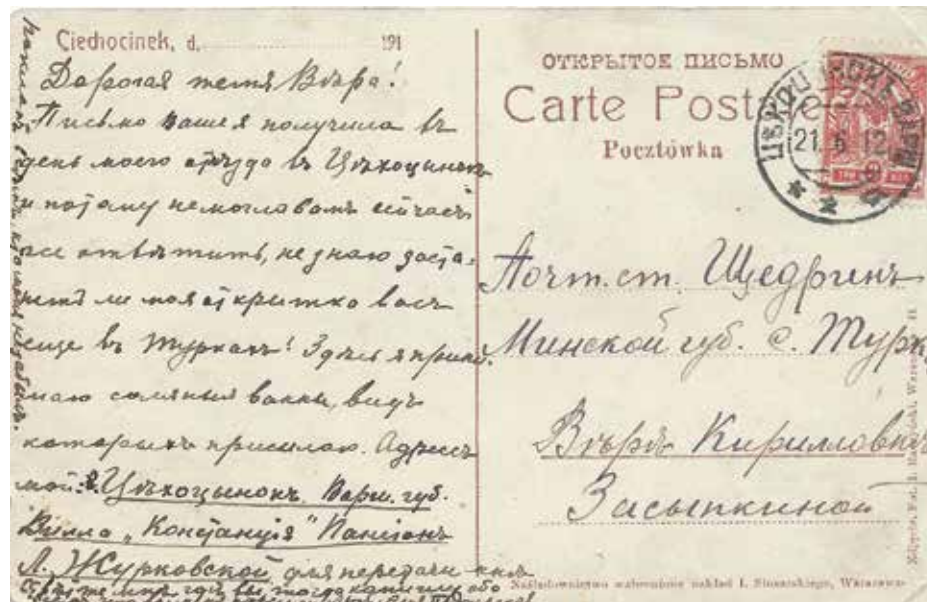 Ciechocinek, d. 191
Дорогая тетя Вѣра!
Письмо ваше я получила въ
день моего отъѣзда въ Цѣхоцинокъ
и потому немогла вамъ сейчасъ
же отвѣтить, не знаю заста-
нетъ ли моя открытка васъ
еще въ Туркахъ! Здѣсь я прини-
маю соляныя ванны, видъ
которыхъ присылаю. Адресъ
мой: Цѣхоцынокъ Варш. губ.
Вилла „Констанція" Пансіонъ
Л. Журковской для передачи
ОТКРЫТОЕ ПИСЬМО
Carte Postale
Pocztówka
21. 6 12
Почт. ст. Щедринъ
Минской губ. с. Турк
Вѣрѣ Кирилловнѣ
Засыпкиной